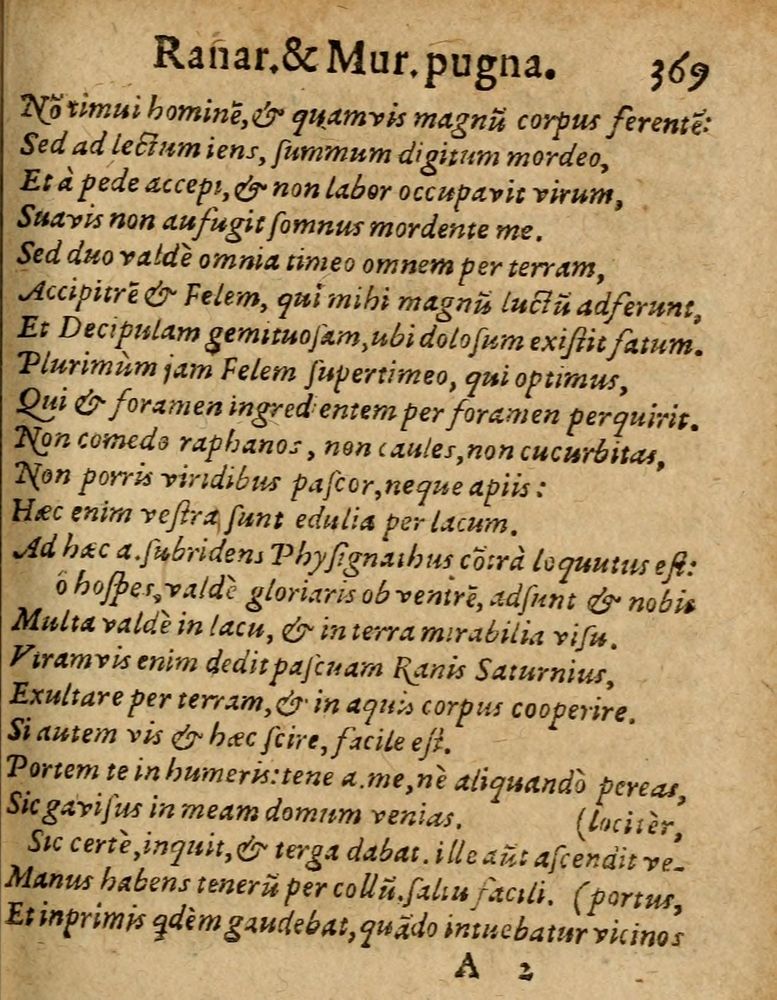 Ranar. & Mur. pugna. 369
Nõ timui hominẽ, & quamvis magnũ corpus ferentẽ:
Sed ad lectum iens, ſummum digitum mordeo,
Et à pede accepi, & non labor occupavit virum,
Suavis non aufugit ſomnus mordente me.
Sed duo valdè omnia timeo omnem per terram,
Accipitrẽ & Felem, qui mihi magnũ luctũ adferunt,
Et Decipulam gemituoſam, ubi doloſum exiſtit fatum.
Plurimùm jam Felem ſupertimeo, qui optimus,
Qui & foramen ingredientem per foramen perquirit.
Non comedo raphanos, non caules, non cucurbitas,
Non porris viridibus paſcor, neque apiis:
Hæc enim veſtra ſunt edulia per lacum.
Ad hæc a. ſubridens Phyſignathus cõtrà loquutus eſt:
ô hoſpes, valdè gloriaris ob ventrẽ, adſunt & nobis
Multa valdè in lacu, & in terra mirabilia viſu.
Viramvis enim dedit paſcuam Ranis Saturnius,
Exultare per terram, & in aquis corpus cooperire.
Si autem vis & hæc ſcire, facile eſt.
Portem te in humeris: tene a. me, nè aliquandò pereas,
Sic gaviſus in meam domum venias. (lociter,
Sic certè, inquit, & terga dabat. ille aũt aſcendit ve-
Manus habens tenerũ per collũ. ſaltu facili. (portus,
Et inprimis qdèm gaudebat, quãdo intuebatur vicinos
A 2